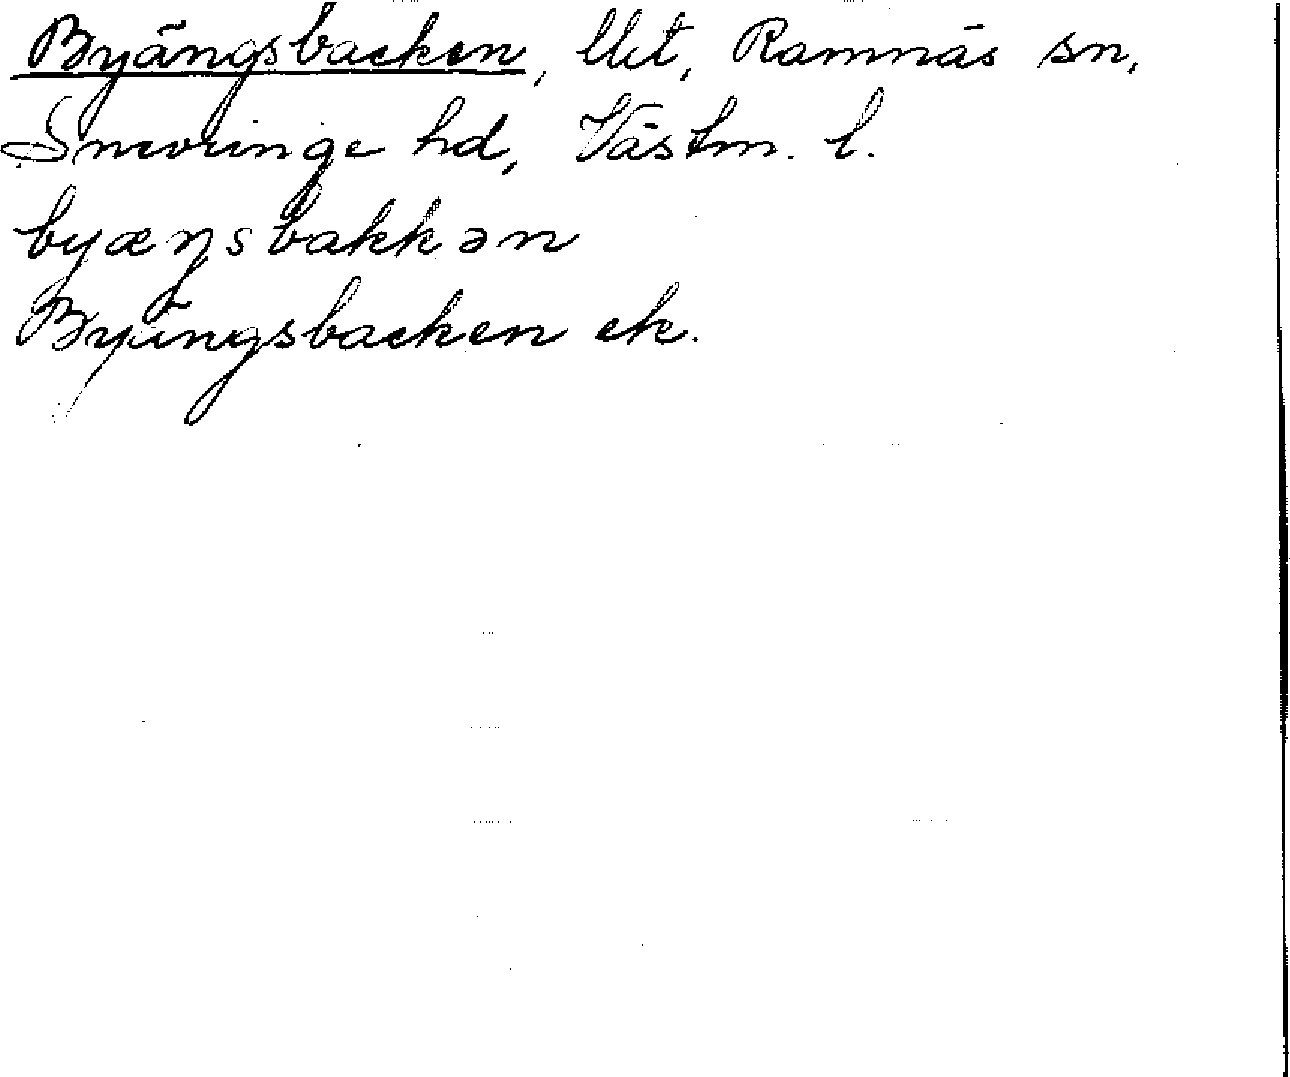 Byängsbacken, Ramnäs sn,
Snevringe hd, Västm. l.
byæŋsbakkən
Byängsbacken ek.